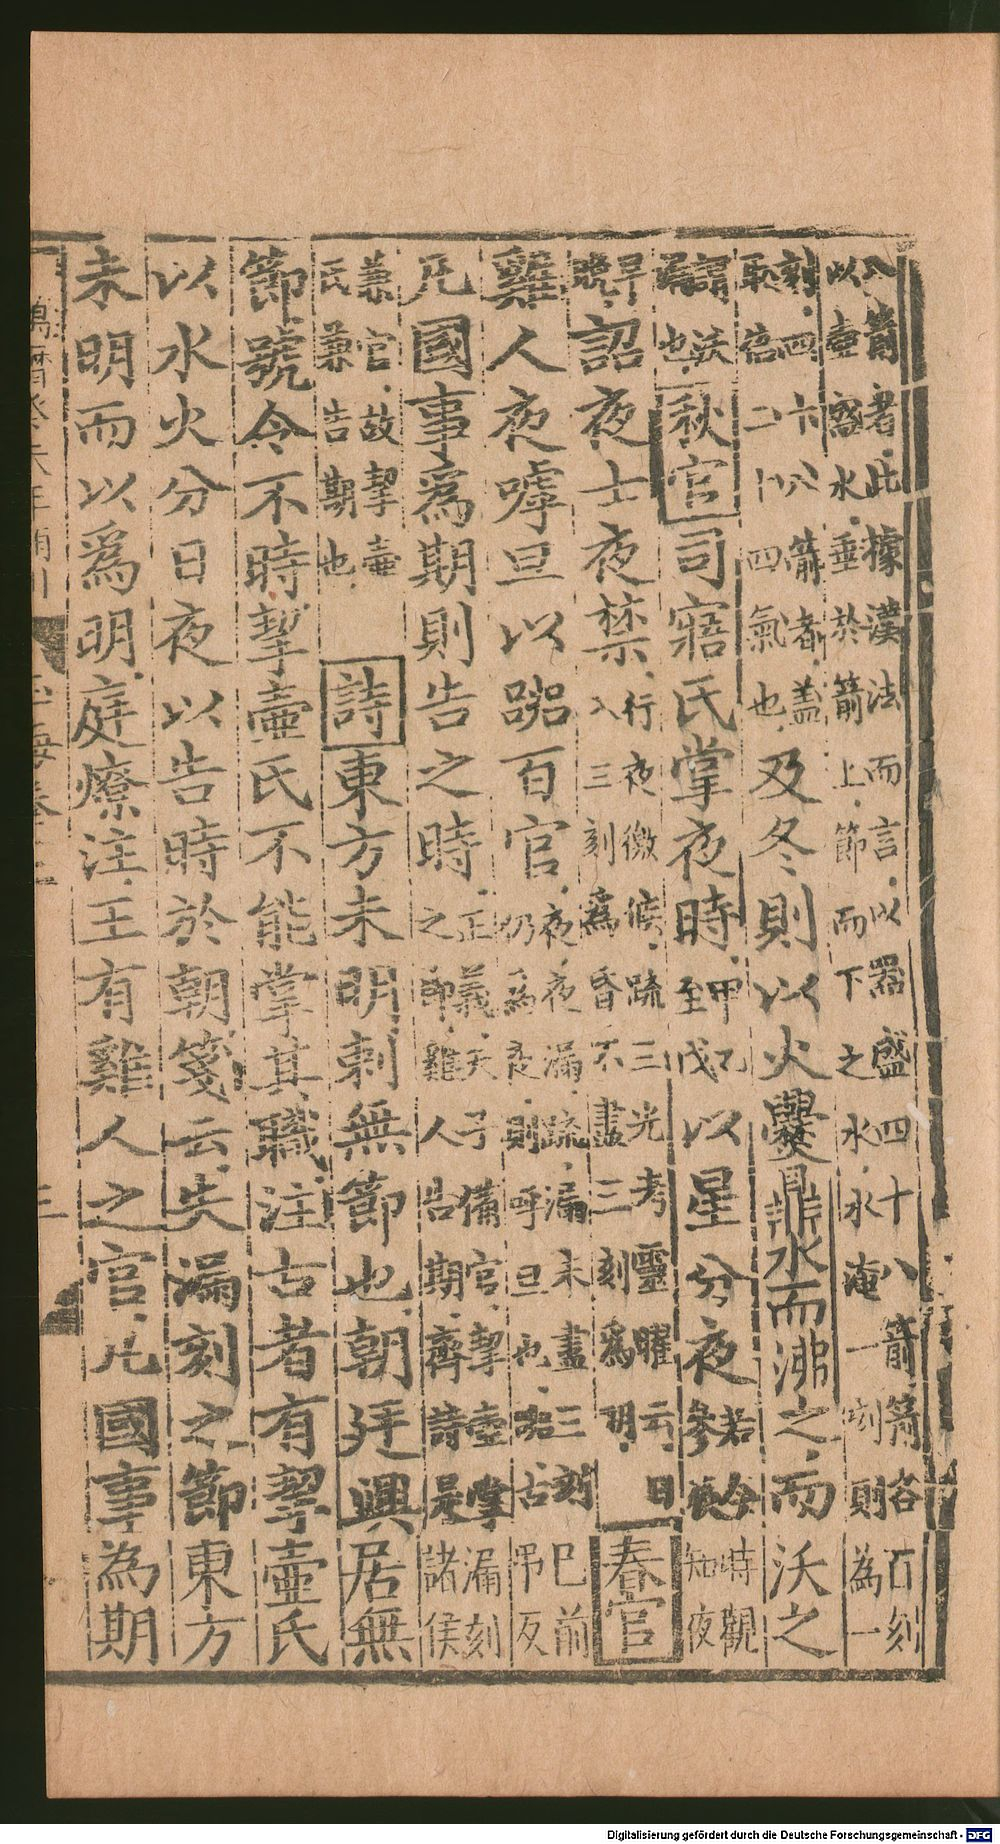 八箭者此據漢法而言以器盛四十八箭箭各百刻
以壺盛水垂於箭上節而下之水水淹一刻則為一
刻四十八箭者蓋取倍二十四氣也及冬則以火爨鼎水而沸之而沃之
謂沃漏也秋官司寤氏掌夜時甲乙至戊以星分夜若今時觀參辰知夜
早晚詔夜士夜禁行夜徼候疏三光考靈曜云日入三刻為昏不盡三刻爲明春官
雞人夜嘑旦以嘂百官夜夜漏疏漏未盡三刻已前仍為夜則呼旦也嘂古弔反
凡國事爲期則告之時正義天子備官挈壺掌漏刻之節雞人告期齊詩是諸侯
兼官故挈壺氏兼告期也詩東方未明刺無節也朝廷興居無
節號令不時挈壺氏不能掌其職注古者有挈壺氏
以水火分日夜以告時於朝箋云失漏刻之節東方
未明而以爲明庭燎注王有雞人之官凡國事為期
三
Digitalisierung gefördert durch die Deutsche Forschungsgemeinschaft - DFG